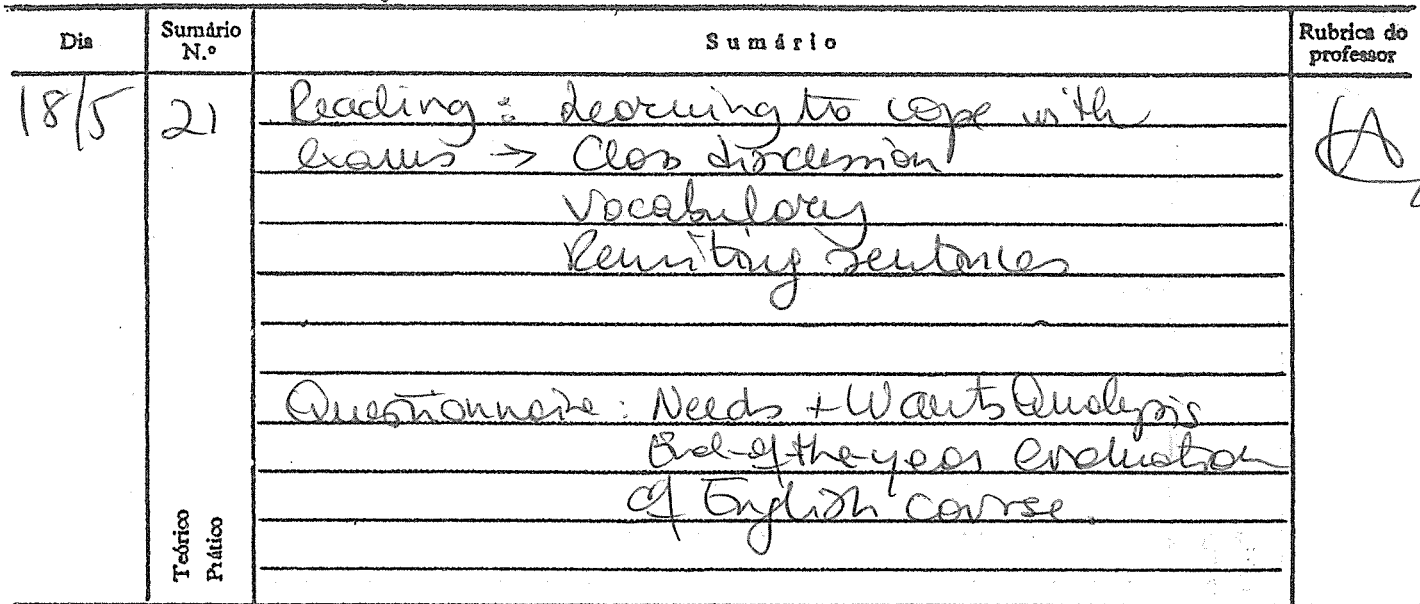 Dia
Sumário N.º
Sumário
Rubrica do professor
18/5
21
Reading: Learning to cope with
exams → Class discussion
Vocabulary
Rewriting sentences
Questionnaire: Needs + Wants Analysis
End-of-the-year evaluation
of English course.
Teórico
Prático